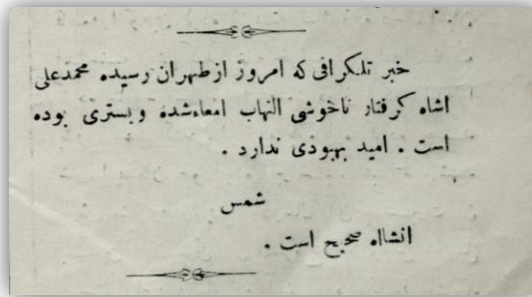 خبر تلگرافی که امروز از طهران رسیده محمدعلی
اشاه گرفتار ناخوشی التهاب امعاءشده و بستری بوده
است . امید بهبودی ندارد .
شمس
انشااه صحیح است .